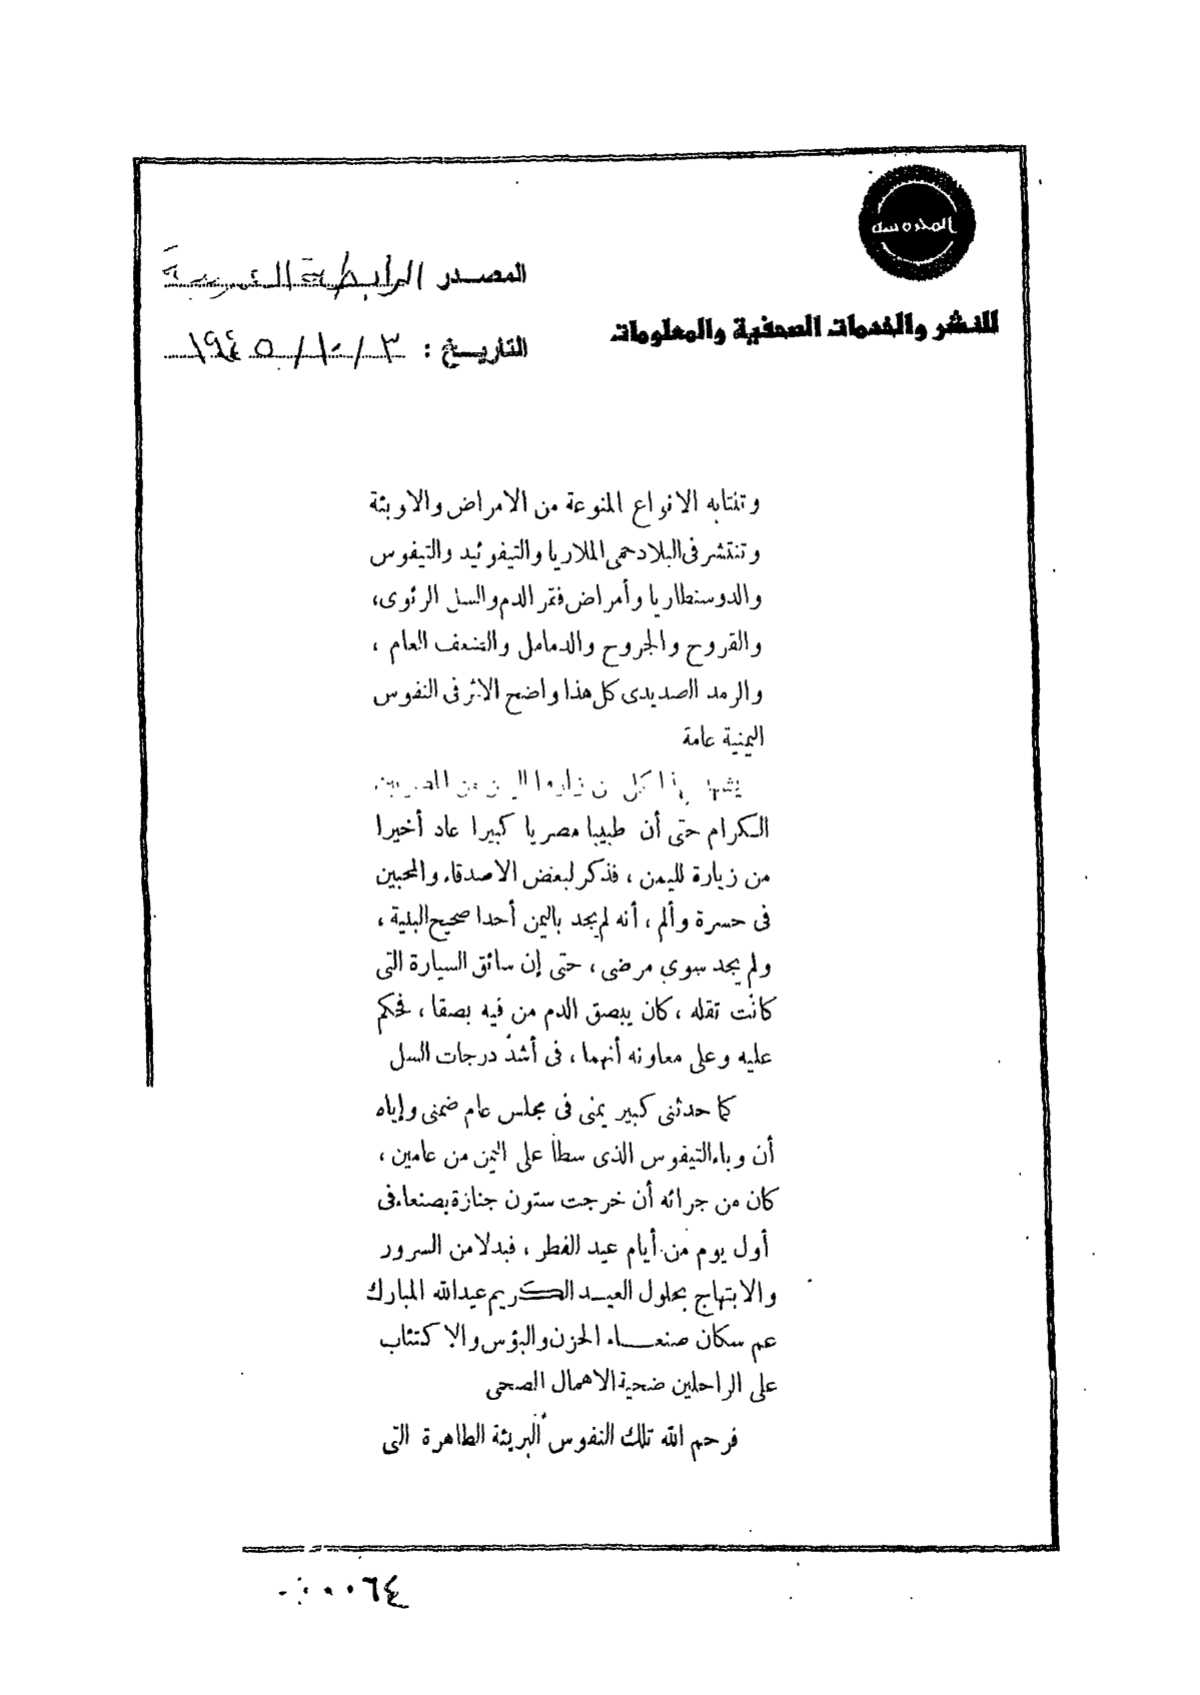 المحروسة
للنشر والخدمات الصحفية والمعلومات
المصدر الرابطة العربية
التاريخ : ٣ / ١٠ / ١٩٤٥
وتنتابه الانواع المنوعة من الامراض والاوبئة
وتنتشر فى البلاد حمى الملاريا والتيفوئيد والتيفوس
والدوسنطاريا وأمراض فقر الدم والسل الرئوى،
والقروح والجروح والدمامل والضعف العام ،
والرمد الصديدى كل هذا واضح الاثر فى النفوس
اليمنية عامة
يشهد بهذا كل من زاروا اليمن من المصريين
الكرام حتى أن طبيبا مصريا كبيرا عاد أخيرا
من زيارة لليمن ، فذكر لبعض الاصدقاء والمحبين
فى حسرة وألم ، أنه لم يجد باليمن أحدا صحيح البنية ،
ولم يجد سوى مرضى ، حتى إن سائق السيارة التى
كانت تقله ، كان يبصق الدم من فيه بصقا ، فحكم
عليه وعلى معاونه أنهما ، فى أشد درجات السل
كما حدثنى كبير يمنى فى مجلس عام ضمنى وإياه
أن وباء التيفوس الذى سطا على اليمن من عامين ،
كان من جرائه أن خرجت ستون جنازة بصنعاء فى
أول يوم من أيام عيد الفطر ، فبدلا من السرور
والابتهاج بحلول العيد الكريم عيد الله المبارك
عم سكان صنعاء الحزن والبؤس والاكتئاب
على الراحلين ضحية الاهمال الصحى
فرحم الله تلك النفوس البريئة الطاهرة التى
٠٠٦٤